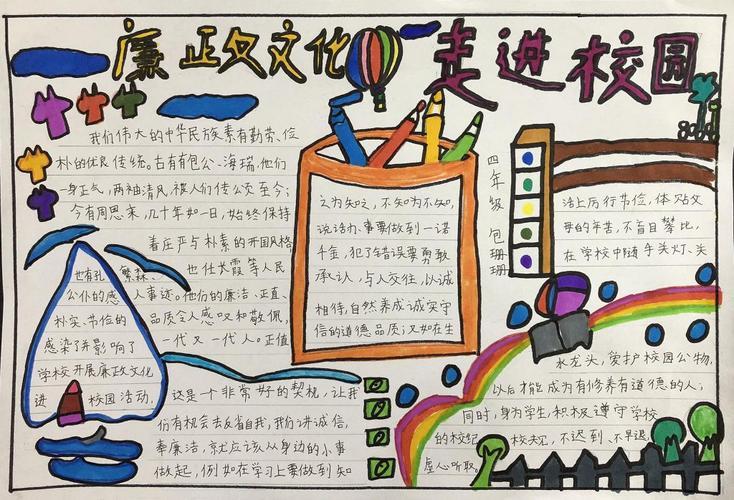 廉政文化 走进校园
我们伟大的中华民族素有勤劳、俭
朴的优良传统。古有包公、海瑞,他们
一身正气,两袖清风,被人们传公颂至今;
今有周恩来,几十年如一日,始终保持
着庄严与朴素的开国风格
也有孔繁森、也任长霞等人民
公仆的感人事迹。他们的廉洁、正直、
朴实、节俭的品质令人感叹和敬佩,
感染了并影响了一代又一代人。正值
学校开展廉政文化
进校园活动,这是一个非常好的契机,让我
们有机会去反省自我,我们讲诚信,
奉廉洁,就应该从身边的小事
做起,例如在学习上要做到知
之为知之,不知为不知,
说话办事要做到一诺
千金,犯了错误要勇敢
承认,与人交往,以诚
相待,自然养成诚实守
信的道德品质;又如在生
四年级 包珊珊
活上厉行节俭,体贴父
母的辛苦,不盲目攀比,
在学校中随手关灯、关
水龙头,爱护校园公物,
以后才能成为有修养有道德的人;
同时,身为学生,积极遵守学校
的校纪校规,不迟到、不早退,
虚心听取。